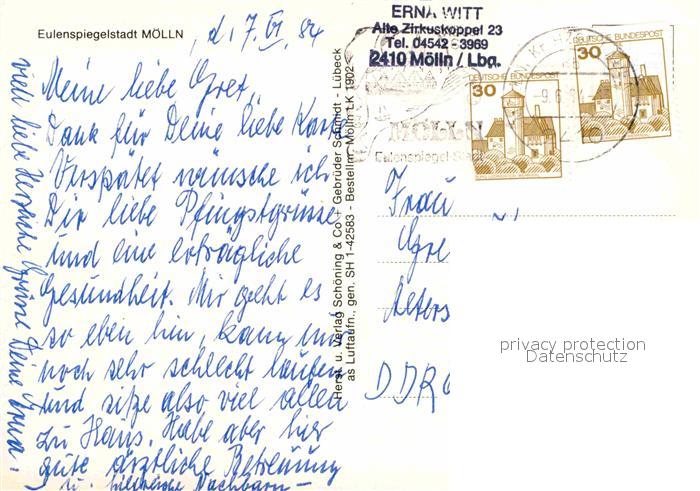 Eulenspiegelstadt MÖLLN
, d. 7. VI. 84
Meine liebe Gret,
Dank für Deine liebe Karte
Verspätet wünsche ich
Dir liebe Pfingstgrüsse
und eine erträgliche
Gesundheit. Mir geht es
so eben hin, kann nur
noch sehr schlecht laufen
und sitze also viel allein
zu Haus. Habe aber hier
gute ärztliche Betreuung
u. hilfreiche Nachbarn –
viele liebe herzliche Grüsse Deine Erna.
Herst. u. Verlag Schöning & Co + Gebrüder Schmidt - Lübeck
as Luftaufn., gen. SH 1-42583 - Bestellnr. Mölln LK 1902
ERNA WITT
Alte Zirkuskoppel 23
Tel. 04542 - 3969
2410 Mölln / Lbg.
DEUTSCHE BUNDESPOST
30
DEUTSCHE BUNDESPOST
30
MÖLLN
Eulenspiegel-Stadt
Frau
Gre
Alters
DDR
privacy protection
Datenschutz